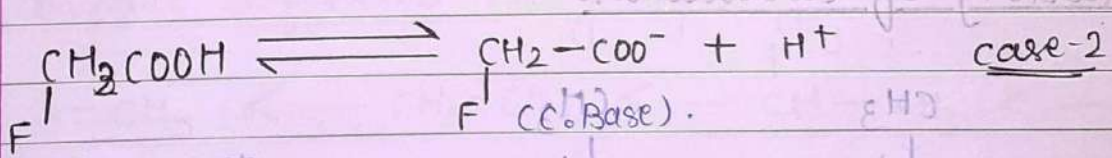 CH₂COOH ⇌ CH₂-COO⁻ + H⁺ case-2
F F (C.Base).